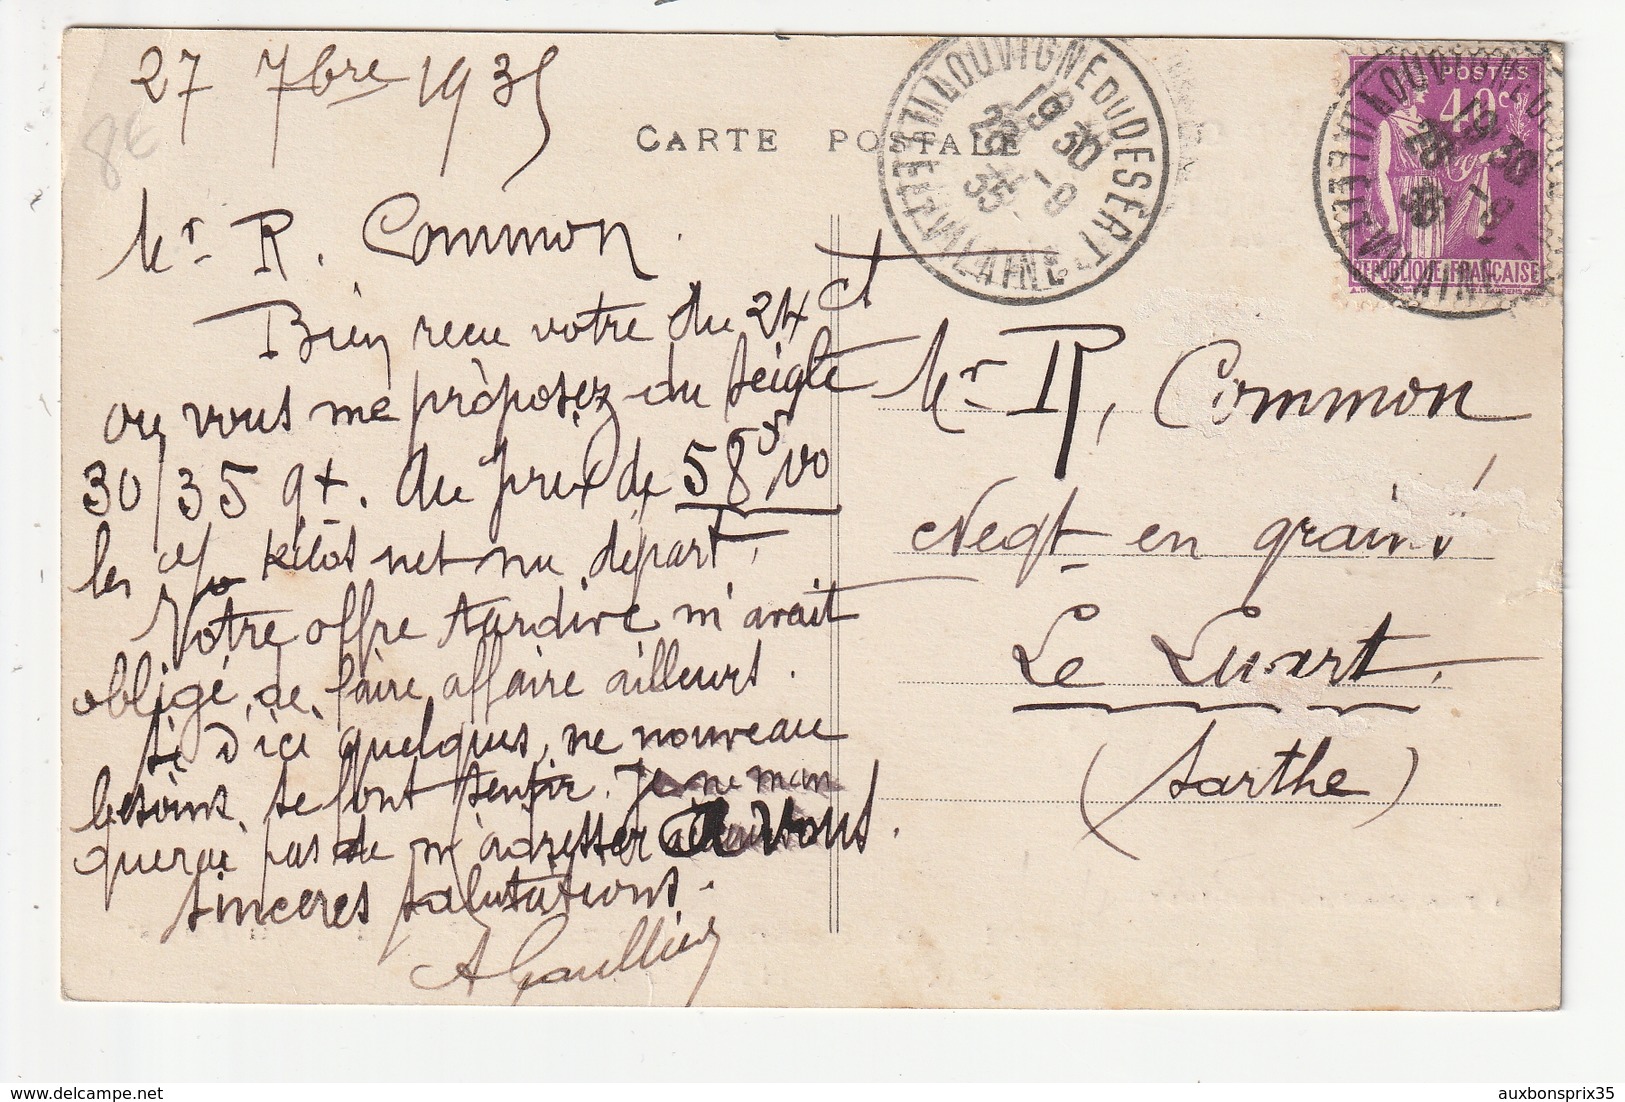 27 7bre 1935
8€
CARTE POSTALE
LOUVIGNE DU DESERT
ILLE ET VILAINE
19 30
28 -9
35
POSTES
40c
REPUBLIQUE FRANCAISE
Mr R. Common.
Bien recu votre du 24 ct
ou vous me proposez du seigle
30/35 qx. Au prix de 58,50
les % kilos net nu départ,
Votre offre tardive m'avait
obligé de faire affaire ailleurs.
Si d'ici quelques, ne nouveau
besoins se font sentir. Je ne man
querai pas de m'adresser A vous.
Sinceres salutations.
A Gaullier
Mr R, Common
Negt en grains
Le Luart.
(Sarthe)
delcampe.net
auxbonsprix35